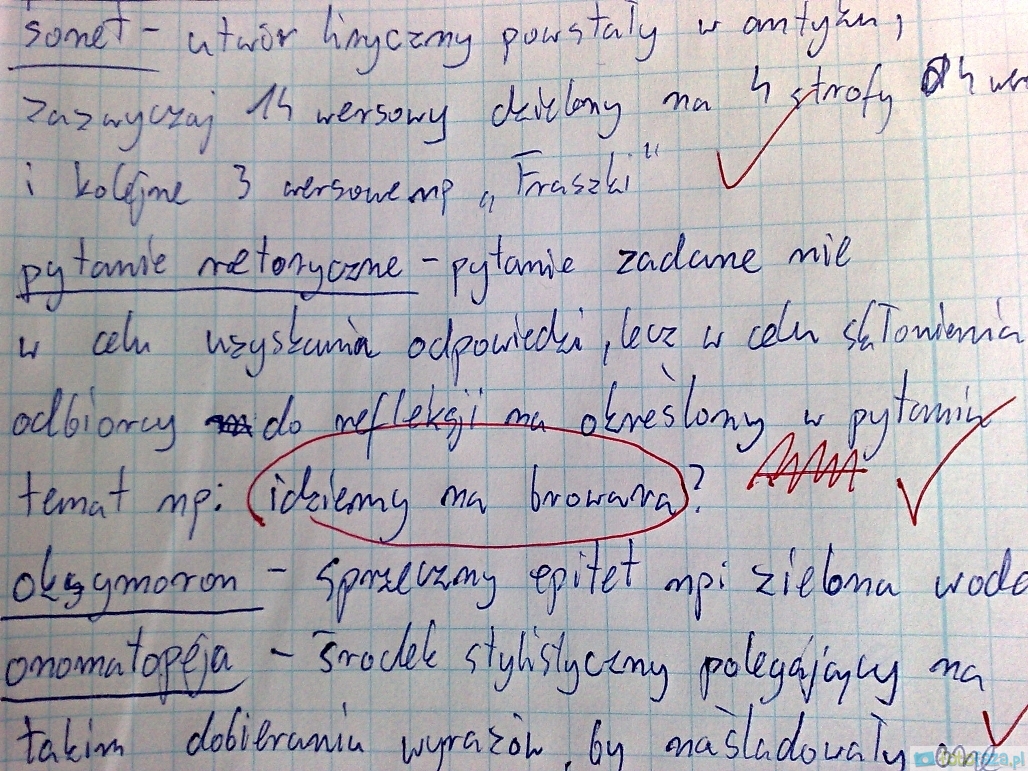 sonet - utwór liryczny powstały w antyku,
zazwyczaj 14 wersowy dzielony na 4 strofy 4
i kolejne 3 wersowe np „Fraszki"
pytanie retoryczne - pytanie zadane nie
w celu uzyskania odpowiedzi, lecz w celu skłonienia
odbiorcy do refleksji na określony w pytaniu
temat np: idziemy na browara?
oksymoron - sprzeczny epitet np: zielona woda
onomatopeja - środek stylistyczny polegający na
takim dobieraniu wyrazów, by naśladowały one